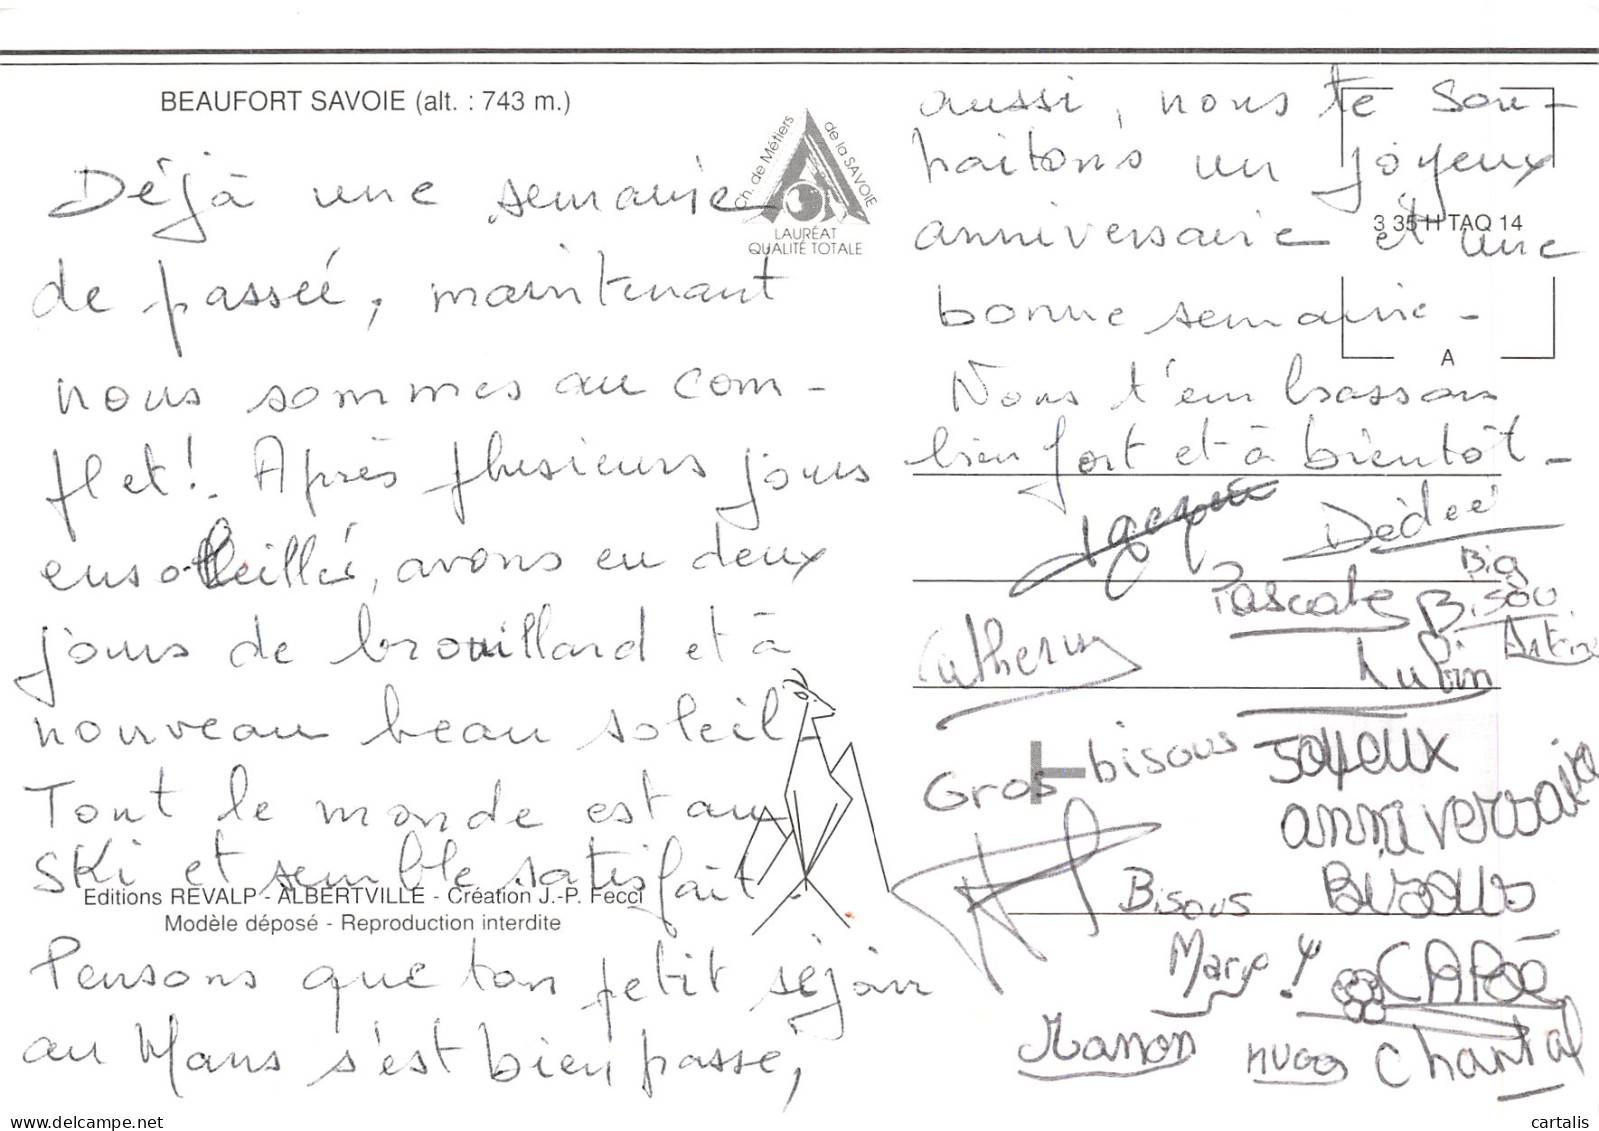 BEAUFORT SAVOIE (alt. : 743 m.)
Ch. de Métiers de la SAVOIE
LAURÉAT
QUALITÉ TOTALE
Déjà une semaine
de passée, maintenant
nous sommes au com-
plet! Après plusieurs jours
ensoleillés, avons eu deux
jours de brouillard et à
nouveau beau soleil.
Tout le monde est au
ski et semble satisfait.
Editions REVALP - ALBERTVILLE - Création J.-P. Fecci
Modèle déposé - Reproduction interdite
Pensons que ton petit séjour
au Mans s'est bien passé,
aussi, nous te sou-
haitons un joyeux
3 35 H TAQ 14
anniversaire et une
bonne semaine -
A
Nous t'embrassons
bien fort et à bientôt -
Dédée
Big
Pascale Bisou
Catherine Antoine
Gros bisous Joyeux
anniversaire
Bisous Bisous
Manon Hugo Chantal
cartalis